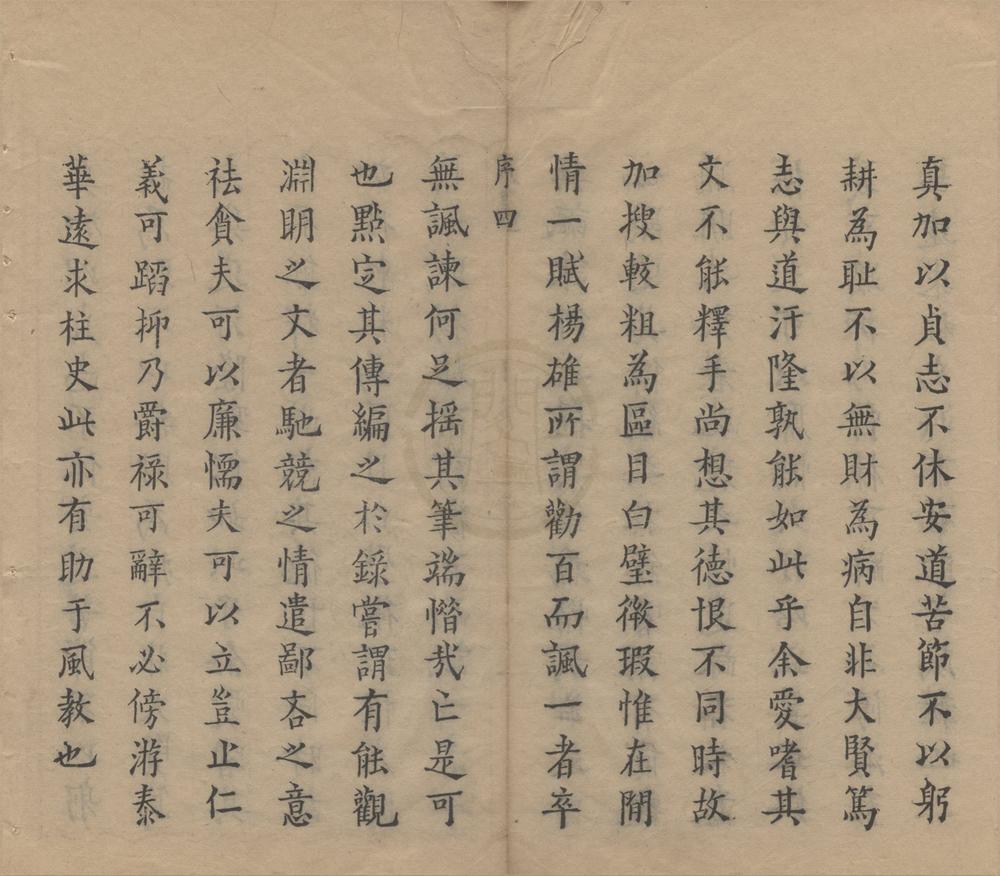 真加以貞志不休安道苦節不以躬
耕為耻不以無財為病自非大賢篤
志與道汙隆孰能如此乎余愛嗜其
文不能釋手尚想其德恨不同時故
加搜較粗為區目白璧微瑕惟在閒
情一賦楊雄所謂勸百而諷一者卒
序 四
無諷諫何足揺其筆端惜哉亡是可
也點定其傳編之於錄嘗謂有能觀
淵明之文者馳競之情遣鄙吝之意
祛貪夫可以廉懦夫可以立豈止仁
義可蹈抑乃爵祿可辭不必傍游泰
華遠求柱史此亦有助于風教也